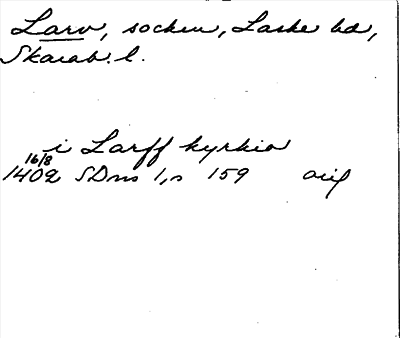 Larv, socken, Laske hd,
Skarab. l.
i Larff kyrkio
16/8
1402 SDns 1, s 159 orig